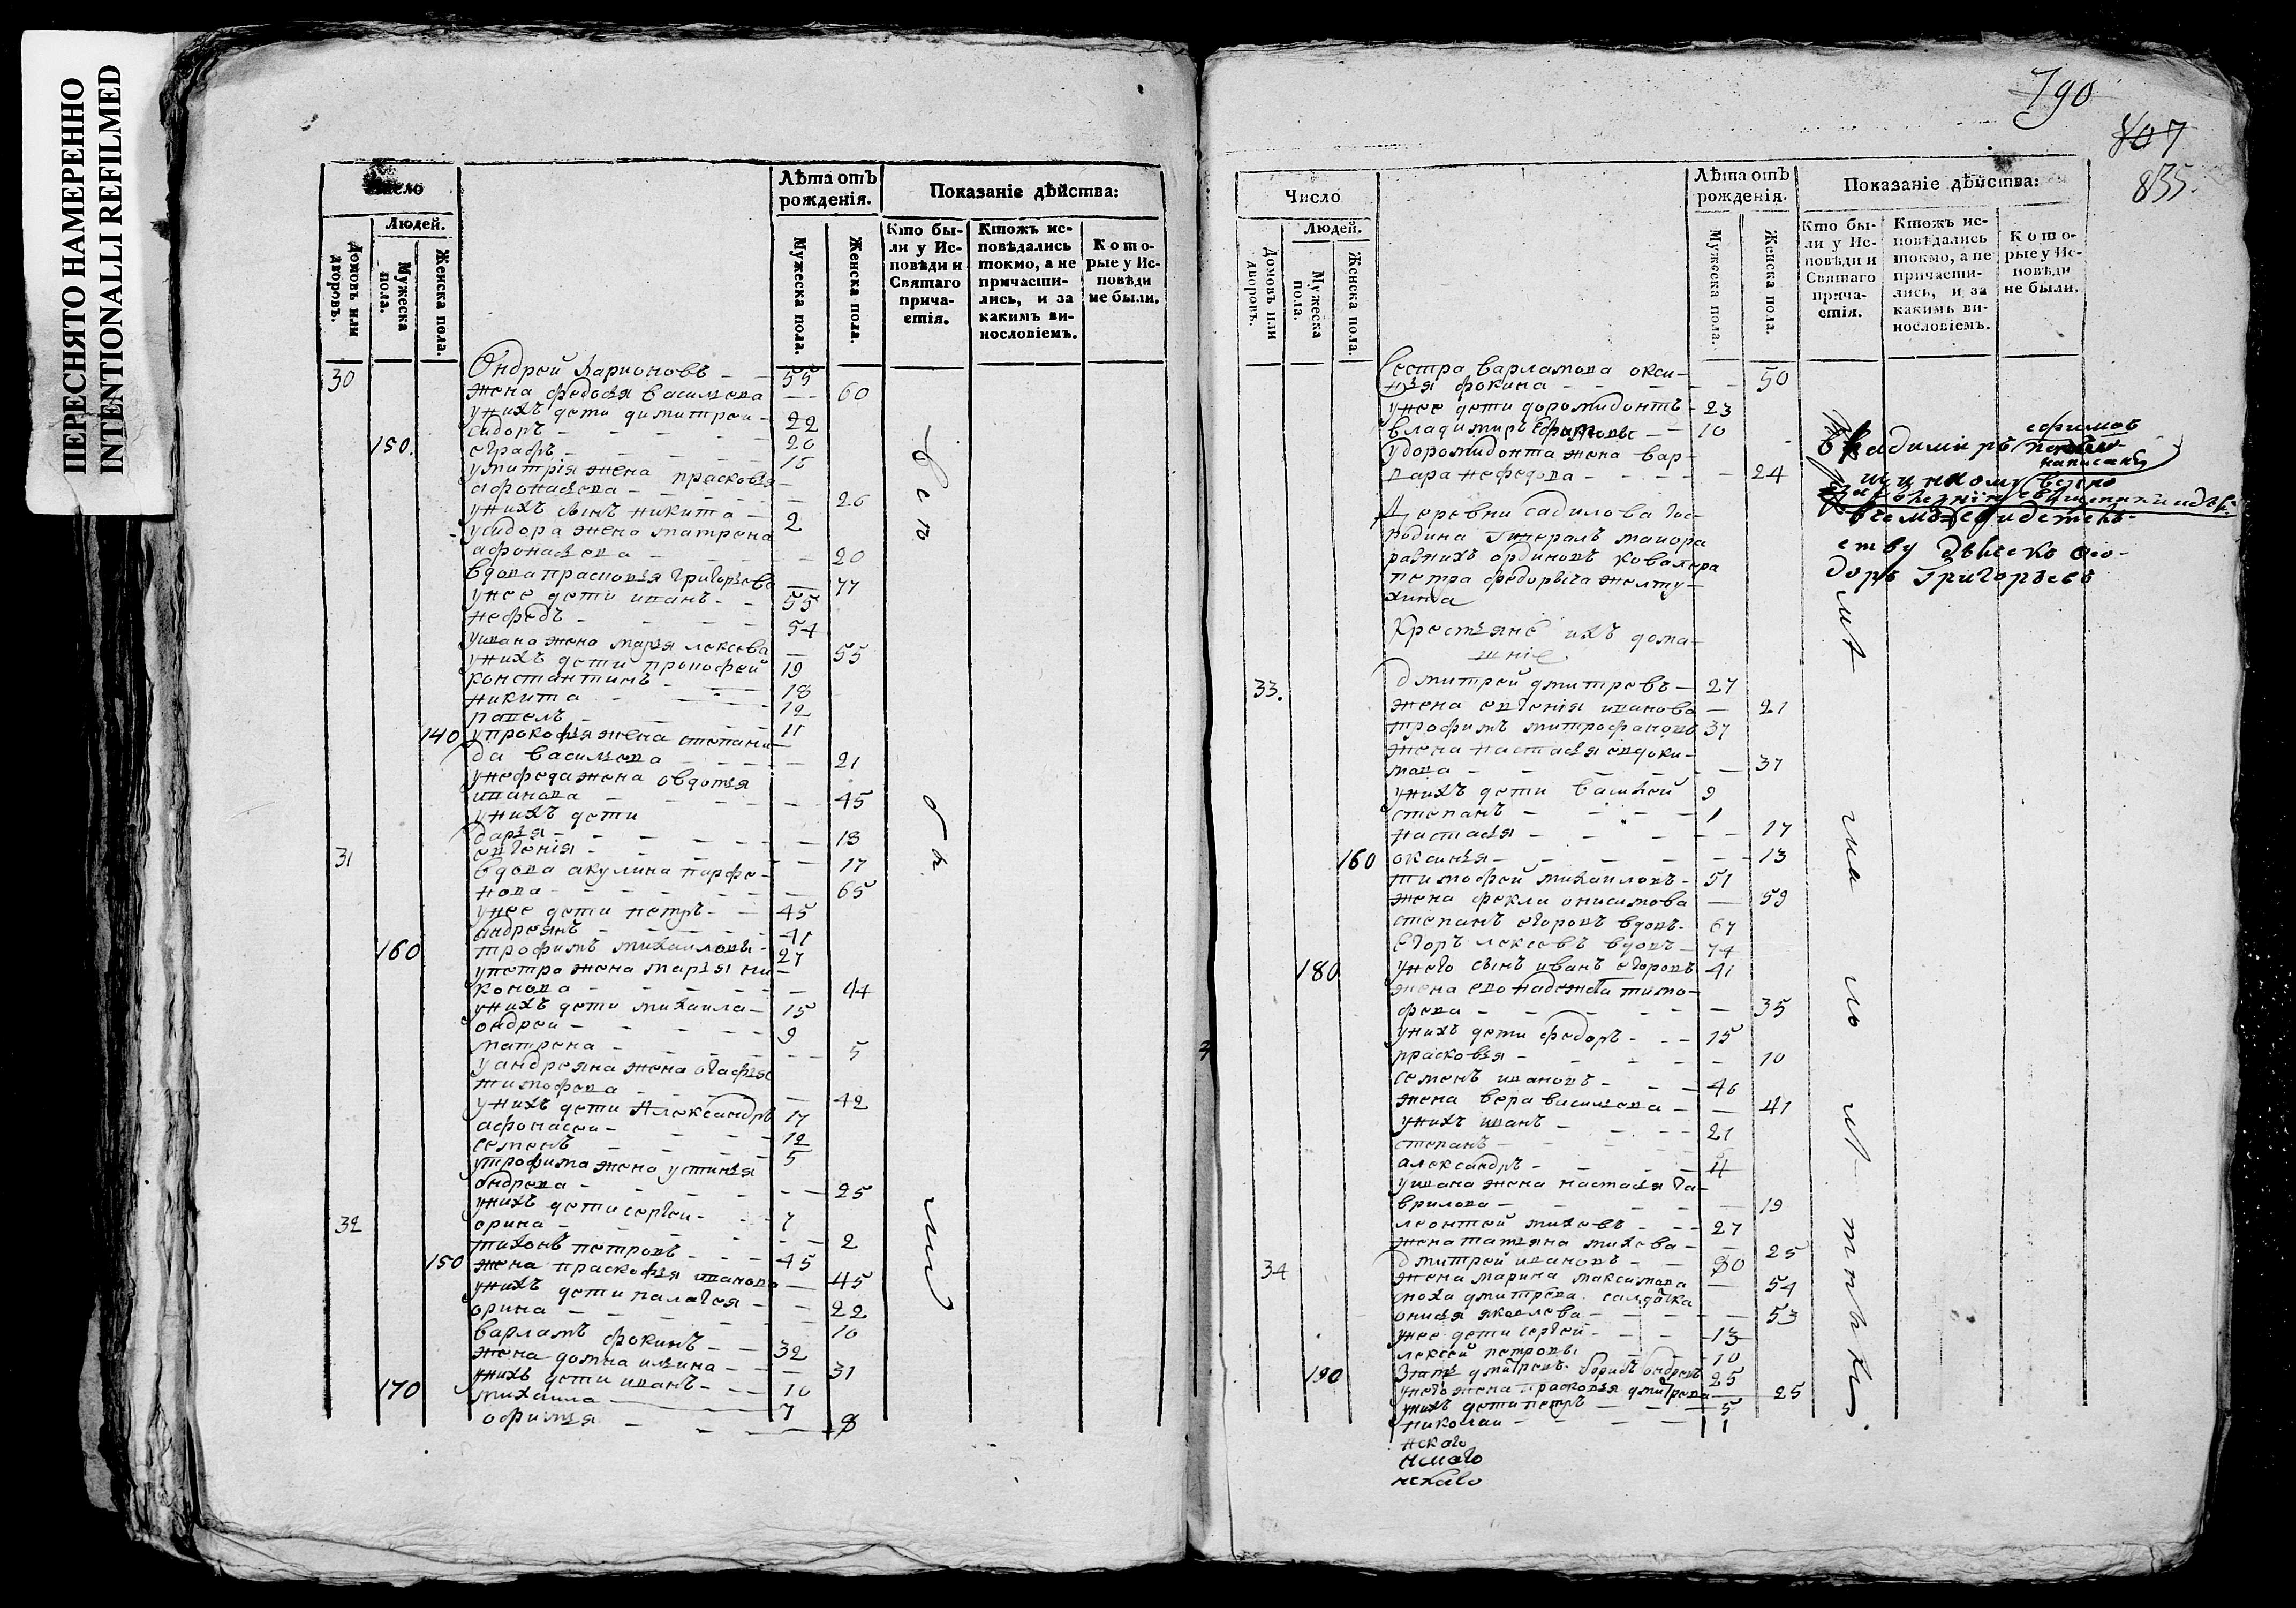 ПЕРЕСНЯТО НАМЕРЕННО
INTENTIONALLI REFILMED
Число
Людей.
Домовъ или дворовъ.
Мужеска пола.
Женска пола.
Лѣта отъ рожденія.
Мужеска пола.
Женска пола.
Показаніе дѣйства:
Кто были у Исповѣди и Святаго причастія.
Ктожъ исповѣдались токмо, а не причастились, и за какимъ винословіемъ.
Которые у Исповѣди не были.
30 Ондрей Ларионовъ — 55
жена федосья васильева — 60
унихъ дети димитреи — 22
сидоръ — 20
150. еграфъ — 15
умитрія жена прасковья
афонасьева — 26
унихъ сынъ никита — 2
усидора жена матрена
афонасьева — 20
вдова прасковья григорьева — 77
унее дети иванъ — 55
нефедъ — 54
уивана жена марья лексева — 55
унихъ дети прокофей 19
константинъ — 18
никита — 12
павелъ — 11
140 упрокофья жена степани
да васильева — 21
унефеда жена овдотья
иванова — 45
унихъ дети
дарья — 18
евгенія — 17
31 вдова акулина парфе-
нова — 65
унее дети петръ — 45
андреянъ — 41
160 трофимъ михаиловы — 27
упетра жена марья ни
конова — 44
унихъ дети михаила — 15
ондреи — 9
матрена — 5
уандреяна жена огафья
тимофева — 42
унихъ дети Александръ 17
афонасеи — 12
семенъ — 5
утрофима жена устинья
ондрева — 25
унихъ дети сергеи — 7
орина — 2
32 тихонъ петровъ — 45
150 жена прасковья иванова — 45
унихъ дети палагея — 22
орина — 10
варламъ фокинъ — 32
жена домна ильина — 31
унихъ дети иванъ — 10
170 михаила — 7
офимья — 8
790
807
835.
Число
Людей.
Домовъ или дворовъ.
Мужеска пола.
Женска пола.
Лѣта отъ рожденія.
Мужеска пола.
Женска пола.
Показаніе дѣйства:
Кто были у Исповѣди и Святаго причастія.
Ктожъ исповѣдались токмо, а не причастились, и за какимъ винословіемъ.
Которые у Исповѣди не были.
Сестра варламова окси-
нья фокина — 50
унее дети доромидонтъ — 23
владимиръ — 10
удоромидонта жена вар-
вара нефедова — 24
Деревни садилова гос-
подина генералъ маиора
разныхъ ординовъ ковалера
петра федорыча желту-
хина
Крестьяне ихъ дома-
шніе
33. дмитрей дмитревъ — 27
жена евгенія иванова — 21
трофимъ митрофановъ 37
жена настасья евдоки-
мова — 37
унихъ дети василей 9
степанъ — 1
настасья — 17
160 оксинья — 13
тимофей михаиловъ — 51
жена фекли онисимова — 59
степанъ егоровъ вдовъ — 67
Егоръ лексевъ вдовъ — 74
180 унего сынъ иванъ егоровъ 41
жена ево надежда тимо-
фева — 35
унихъ дети федоръ — 15
прасковья — 10
семенъ ивановъ — 46
жена вера васильева — 41
унихъ иванъ — 21
степанъ —
александръ — 4
уивана жена настасья га-
врилова — 19
леонтей михевъ — 27
жена татьяна михева — 25
34 дмитрей ивановъ — 80
жена марина максимова — 54
сноха дмитрева салдатка
онисья яковлева — 53
унее дети сергей — 13
лексей петровы — 10
190 зать дмитревъ борисъ ондревъ 25
унего жена прасковья дмитрева — 25
унихъ дети петръ — 5
николаи — 1
нскаго
нскаго
нскаго
ефимов
написанъ
свидетель-
ству дьячекъ Фео-
доръ Григорьевъ